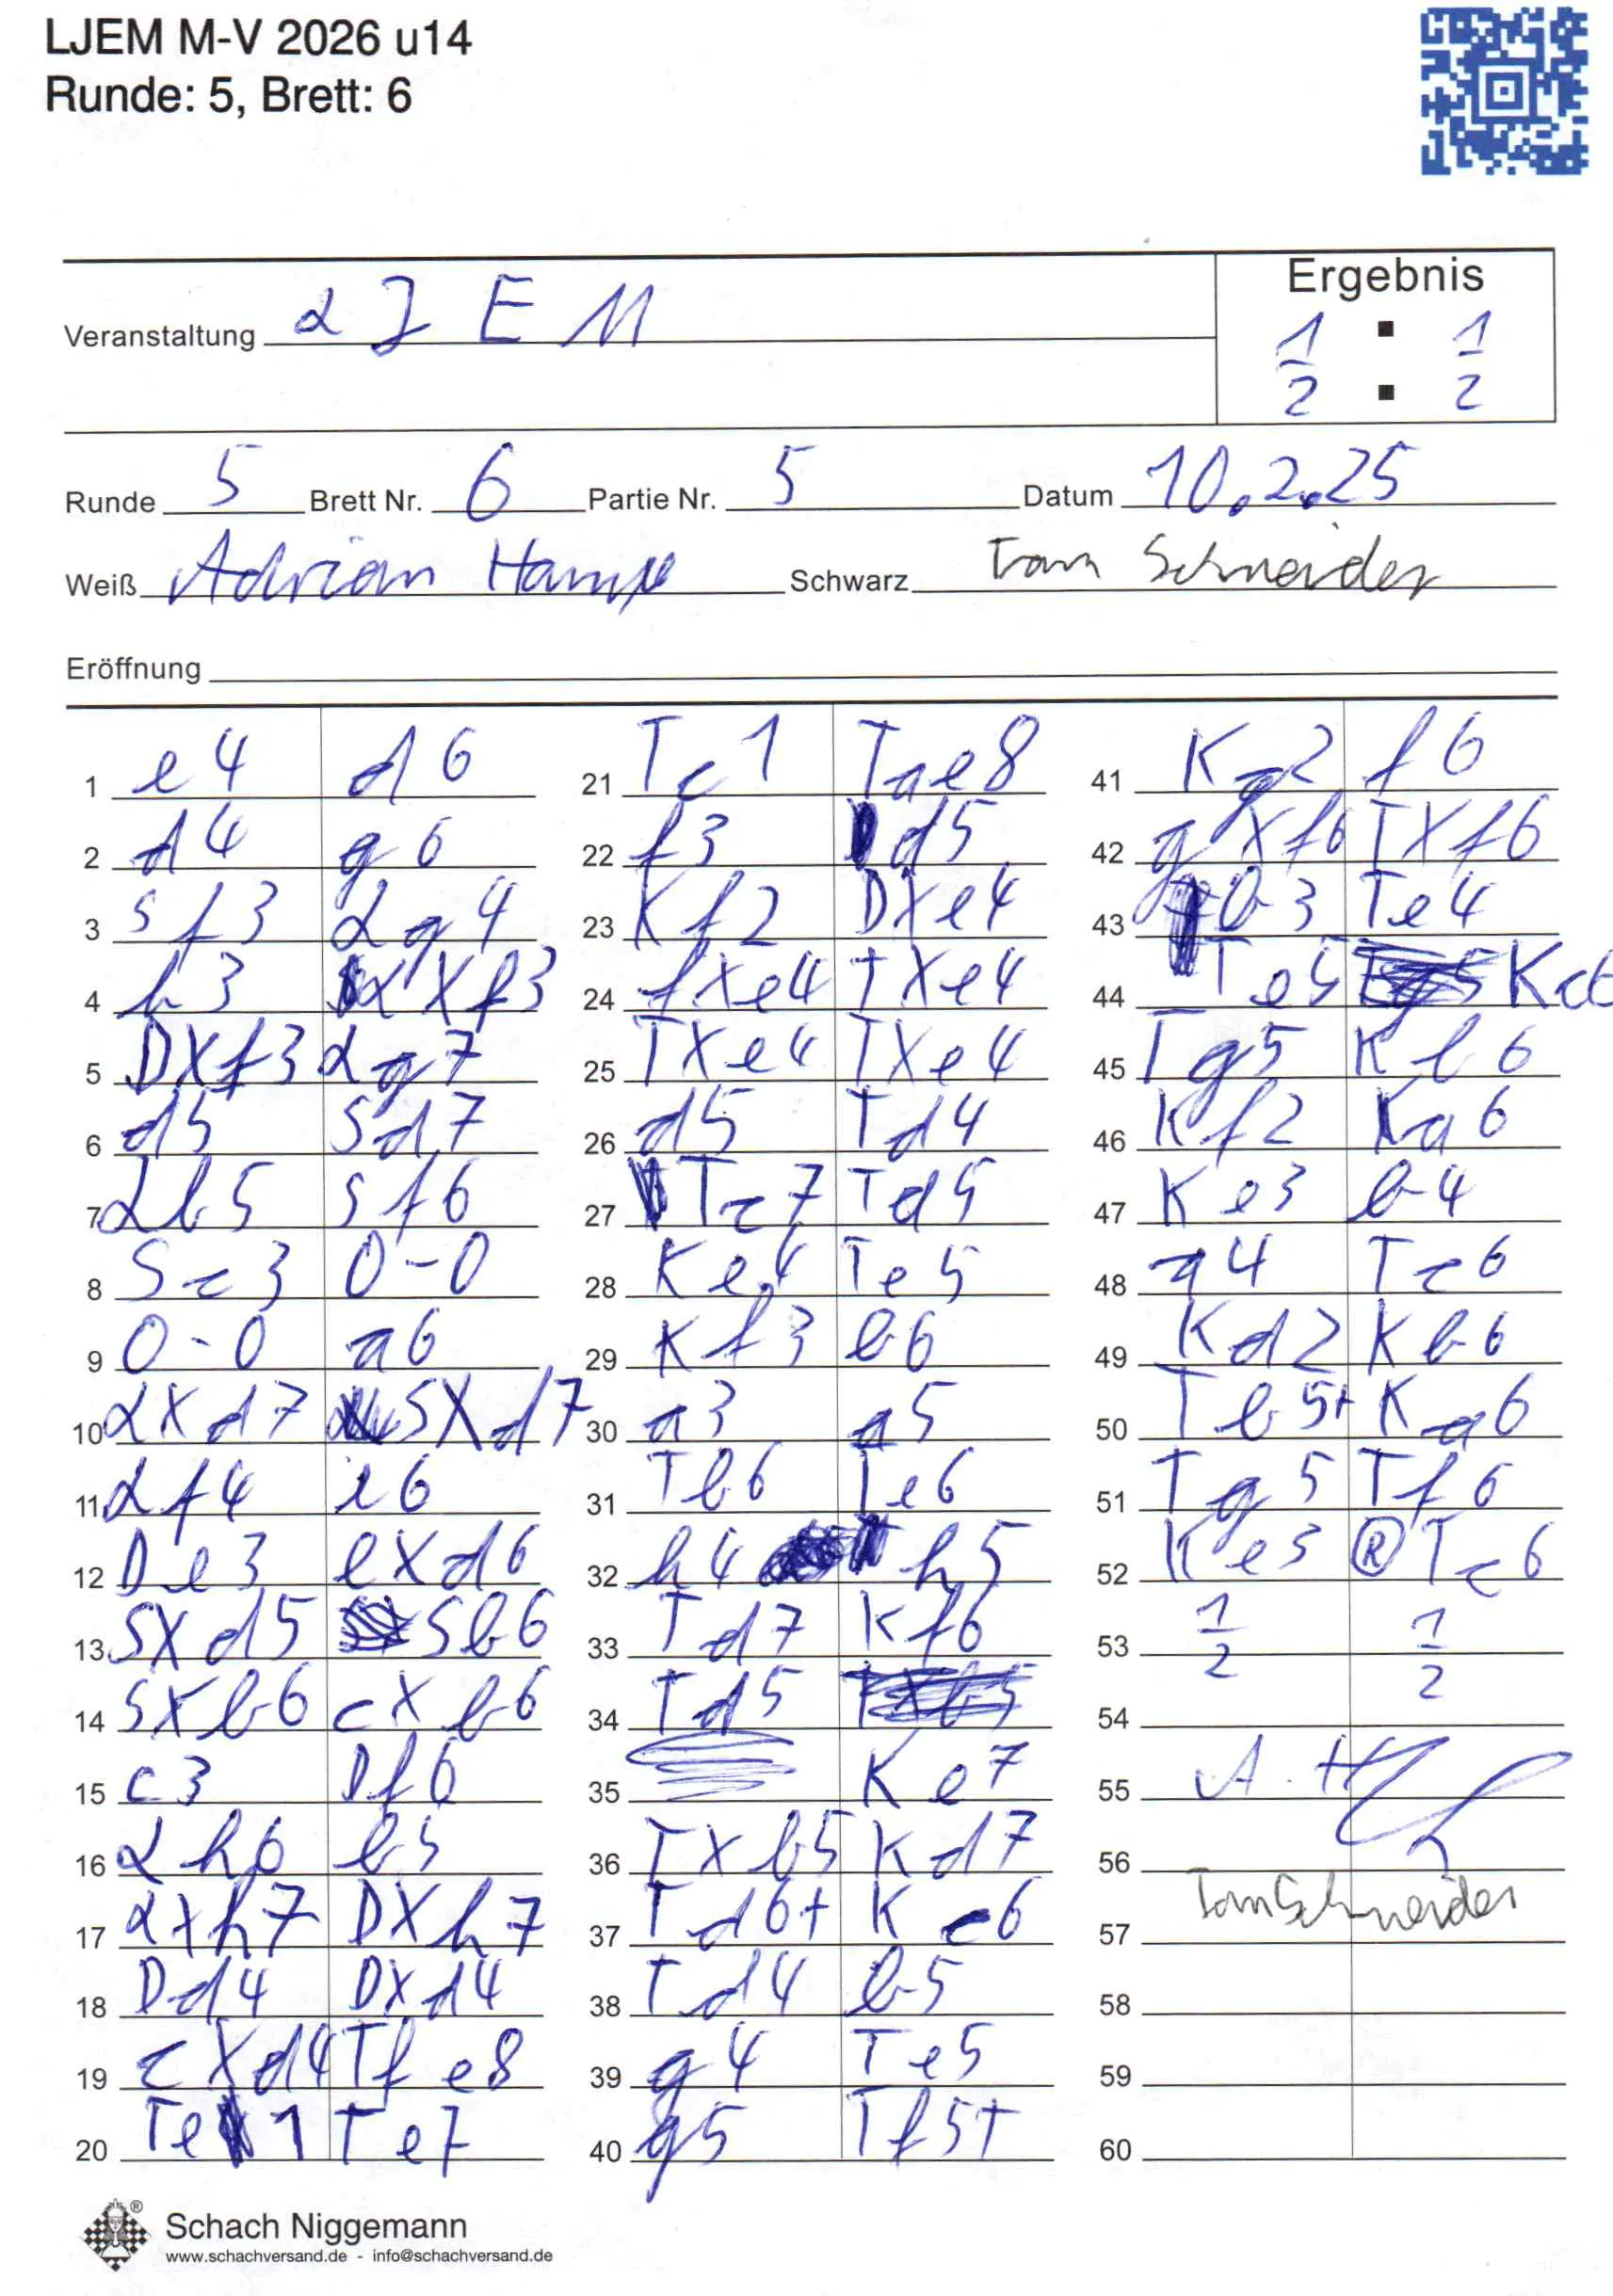 LJEM M-V 2026 u14
Runde: 5, Brett: 6
Ergebnis
Veranstaltung LJEM
1/2 : 1/2
Runde 5 Brett Nr. 6 Partie Nr. 5 Datum 10.2.25
Weiß Adrian Hamp Schwarz Tom Schneider
Eröffnung
1 e4 d6
2 d4 g6
3 Sf3 Lg4
4 h3 LXf3
5 DXf3 Lg7
6 d5 Sd7
7 Lb5 Sf6
8 Sc3 0-0
9 0-0 a6
10 LXd7 SXd7
11 Lf4 e6
12 De3 eXd6
13 SXd5 Sb6
14 SXb6 cXb6
15 c3 Df6
16 Lh6 b5
17 LXh7 DXh7
18 Dd4 DXd4
19 cXd4 Tfe8
20 Te1 Te7
21 Tc1 Tae8
22 f3 d5
23 Kf2 DXe4
24 fXe4 TXe4
25 TXe4 TXe4
26 d5 Td4
27 Tc7 Td5
28 Ke4 Te5
29 Kf3 b6
30 a3 a5
31 Tb6 Te6
32 h4 h5
33 Td7 Kf6
34 Td5
35 Ke7
36 TXb5 Kd7
37 Td6+ Kc6
38 Td4 b5
39 g4 Te5
40 g5 Tf5+
41 Kg2 f6
42 gXf6 TXf6
43 b3 Te4
44 Te5 Kc6
45 Tg5 Kb6
46 Kf2 Ka6
47 Ke3 b4
48 a4 Tc6
49 Kd2 Kb6
50 Tb5+ Ka6
51 Tg5 Tf6
52 Ke3 (R) Tc6
53 1/2 1/2
54
55 A. H
56
57 Tom Schneider
58
59
60
Schach Niggemann
www.schachversand.de - info@schachversand.de